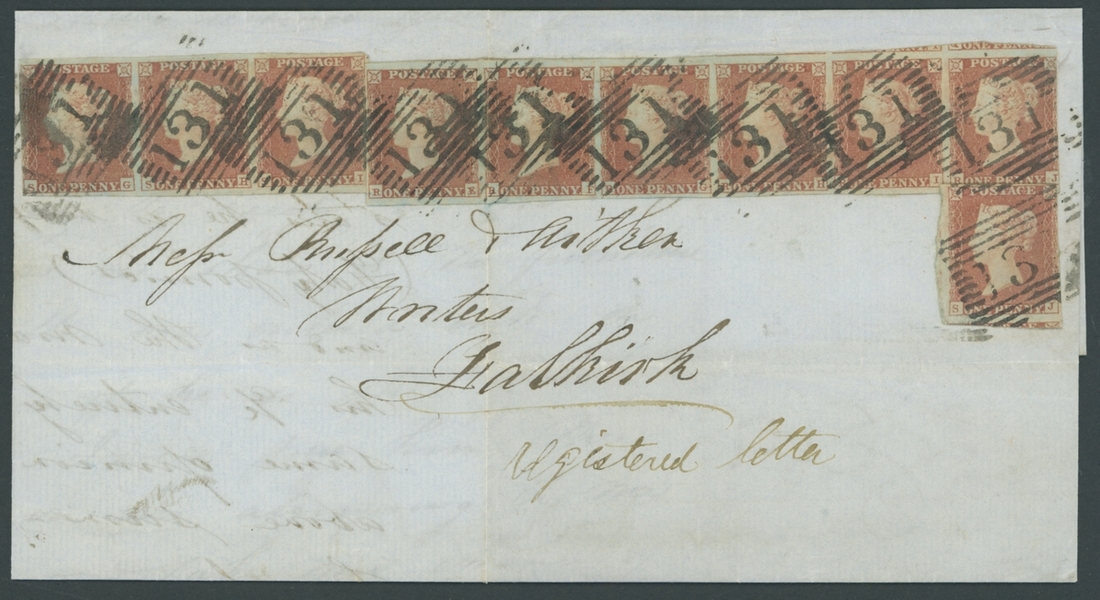 POSTAGE POSTAGE POSTAGE POSTAGE POSTAGE POSTAGE POSTAGE POSTAGE POSTAGE
131 131 131 131 131 131 131 131 131
S ONE PENNY G S ONE PENNY H S ONE PENNY I R ONE PENNY E R ONE PENNY F R ONE PENNY G R ONE PENNY H R ONE PENNY I R ONE PENNY J
POSTAGE
13
S ONE PENNY J
Messrs Russell & Aitken
Writers
Falkirk
registered letter